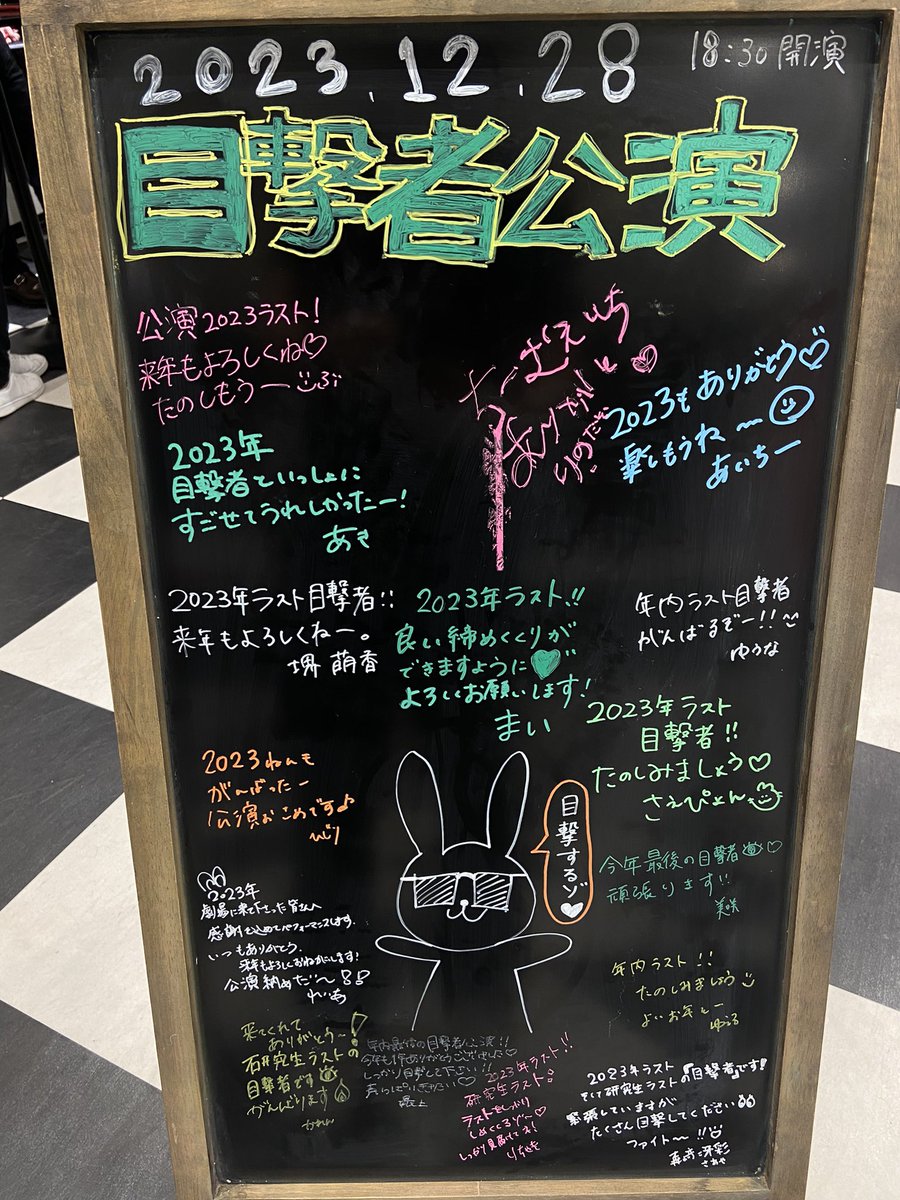 2023.12.28
18:30開演
目撃者公演
公演2023ラスト!
来年もよろしくね♡
たのしもうー
ちーむえいち
ありがと
2023もありがとう♡
楽しもうね〜
あいちー
2023年
目撃者といっしょに
すごせてうれしかったー!
あき
2023年ラスト目撃者!!
来年もよろしくねー。
堺 萌香
2023年ラスト!!
良い締めくくりが
できますように♡
よろしくお願いします!
まい
年内ラスト目撃者
がんばるぞー!!
ゆうな
2023年ラスト
目撃者!!
たのしみましょう♡
さえぴょん
2023ねんも
がんばったー
公演おさめです♪
ひじり
目撃するゾ♡
今年最後の目撃者♡
頑張ります!!
美咲
2023年
劇場に来て下さった皆さんへ
感謝を込めてパフォーマンスします。
いつもありがとう。
来年もよろしくおねがいします!
公演納めだ〜!!
れいあ
年内ラスト!!
たのしみましょう
よいお年をー
来てくれて
ありがとう〜!
研究生ラストの
目撃者です
がんばります
かれん
年内最後の目撃者公演!!
今年も1年ありがとうございました♡
しっかり目撃して下さい!!
最上
2023年ラスト!!
研究生ラスト。
ラストをしっかり
しめくくるゾ〜♡
しっかり見届けてネ!
りちゃき
2023年ラスト
そして研究生ラストの『目撃者』です!
緊張していますが
たくさん目撃してください
ファイト〜!!